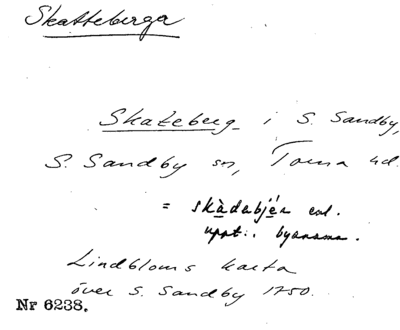 Skatteberga
Skateberg i S. Sandby,
S. Sandby sn, Torna hd.
= skàdabjér enl.
uppt.: byanamn.
Lindbloms karta
över S. Sandby 1750.
Nr 6238.